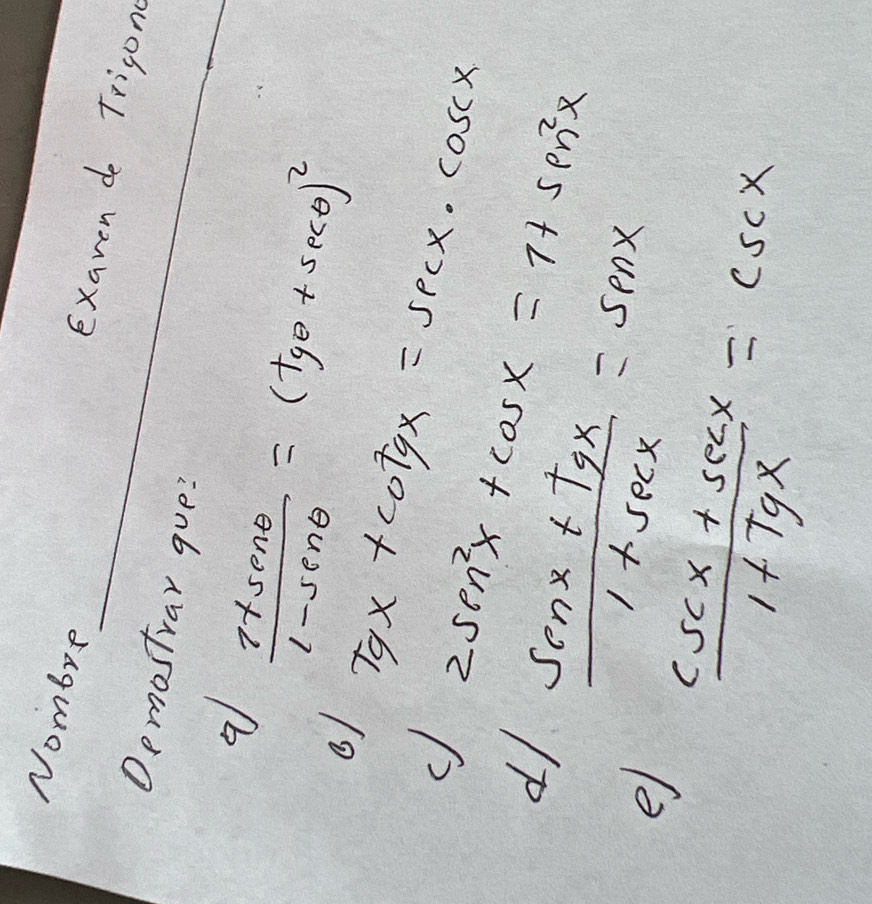 Nombre Examen de Trigono
Demostrar que:
a) 1+senθ / 1-senθ = (tgθ + secθ)²
b) Tgx + cotgx = secx . coscx
c) 2sen²x + cosx = 1+ sen²x
d) senx + Tgx / 1+ secx = senx
e) cscx + secx / 1+ Tgx = cscx